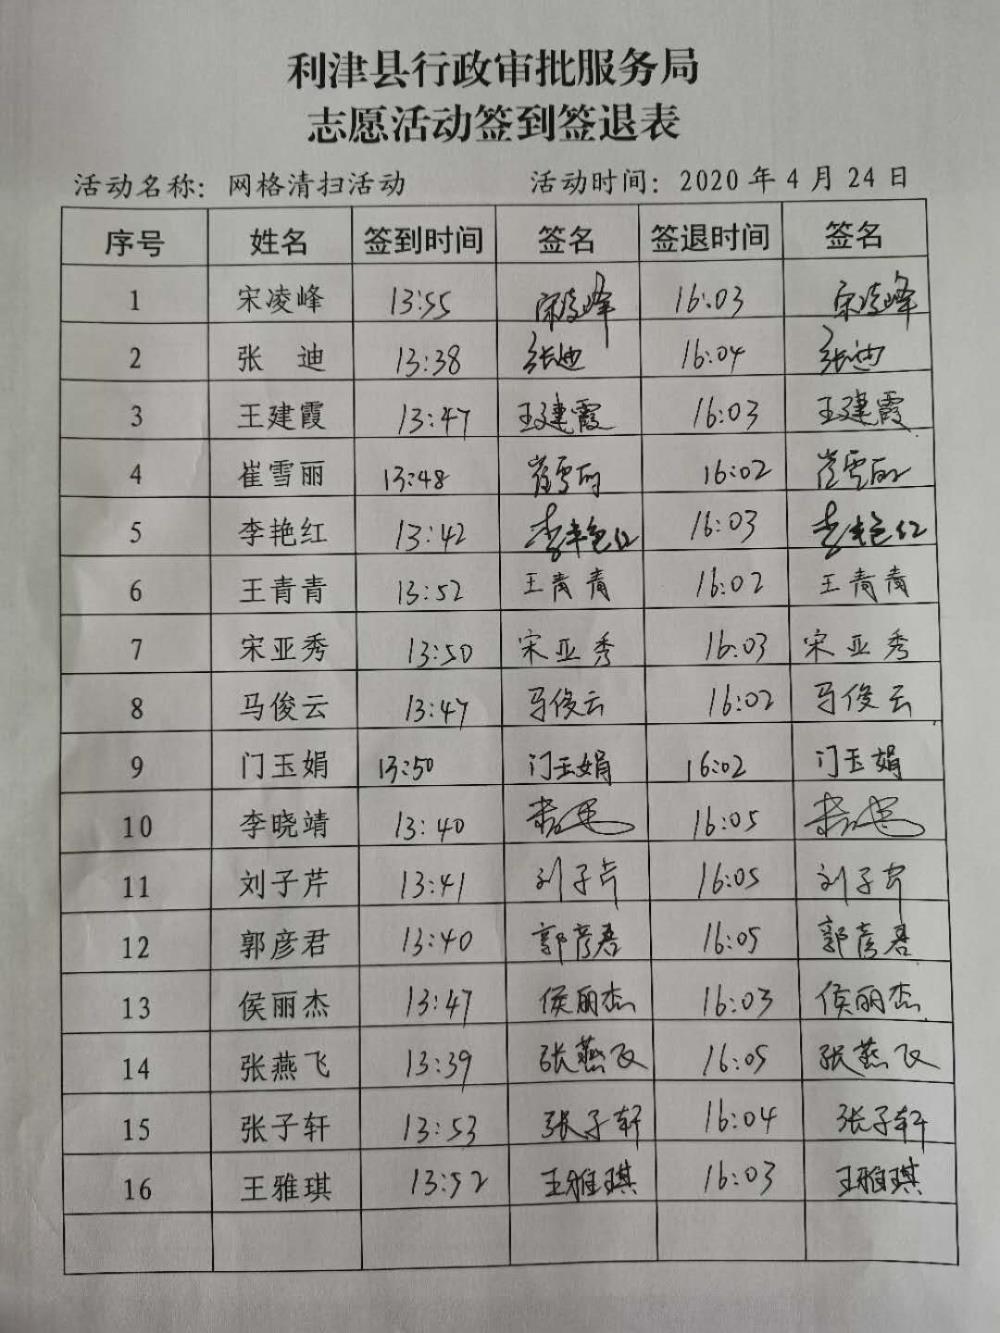 利津县行政审批服务局
志愿活动签到签退表
活动名称：网格清扫活动 活动时间：2020年4月24日
序号 姓名 签到时间 签名 签退时间 签名
1 宋凌峰 13:55 宋凌峰 16:03 宋凌峰
2 张 迪 13:38 张迪 16:04 张迪
3 王建霞 13:47 王建霞 16:03 王建霞
4 崔雪丽 13:48 崔雪丽 16:02 崔雪丽
5 李艳红 13:42 李艳红 16:03 李艳红
6 王青青 13:52 王青青 16:02 王青青
7 宋亚秀 13:50 宋亚秀 16:03 宋亚秀
8 马俊云 13:47 马俊云 16:02 马俊云
9 门玉娟 13:50 门玉娟 16:02 门玉娟
10 李晓靖 13:40 16:05
11 刘子芹 13:41 刘子芹 16:05 刘子芹
12 郭彦君 13:40 郭彦君 16:05 郭彦君
13 侯丽杰 13:47 侯丽杰 16:03 侯丽杰
14 张燕飞 13:39 张燕飞 16:05 张燕飞
15 张子轩 13:53 张子轩 16:04 张子轩
16 王雅琪 13:52 王雅琪 16:03 王雅琪